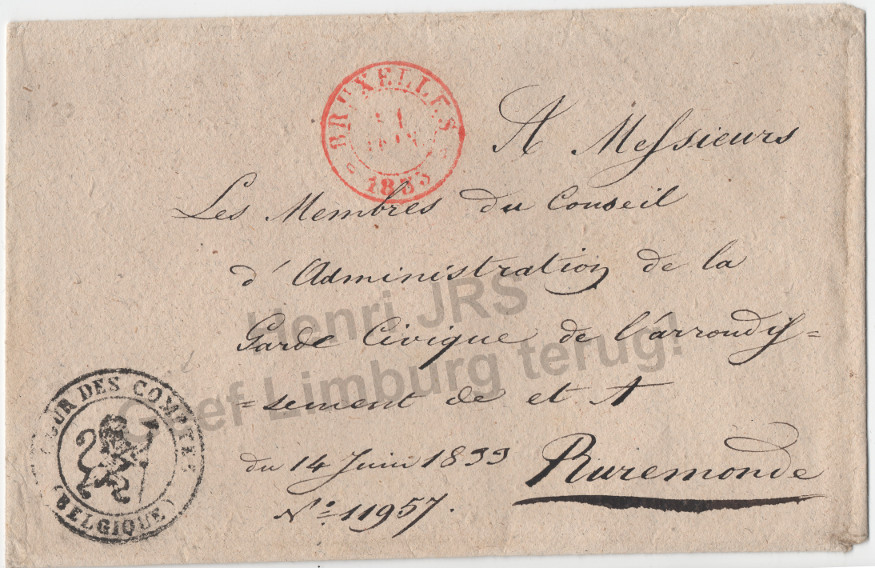 BRUXELLES
1833
A Messieurs
Les Membres du Conseil
d'Administration de la
Garde Civique de l'arrondis=
=sement de et A
Ruremonde
du 14 Juin 1833
Nº 11957.
COUR DES COMPTES
(BELGIQUE)
Henri JRS
Geef Limburg terug!